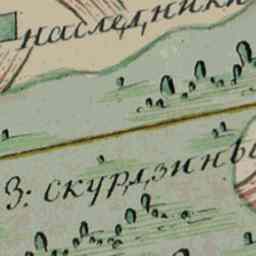 наследники
3: скурдзины